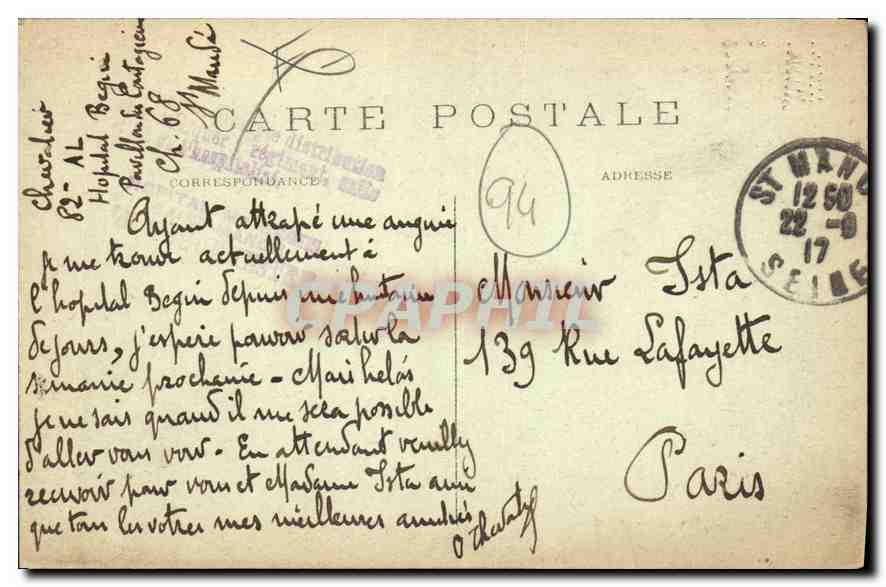 Chevalier
82 - AL
Hopital Begin
Pavillon des Contagieux
Ch. 68
St Mandé
CARTE POSTALE
CORRESPONDANCE
ADRESSE
distribution
94
ST MAND
12 50
22 - 9
17
SEINE
Ayant attrapé une angine
je me trouve actuellement à
l'hopital Begin depuis une huitaine
de jours, j'espère pouvoir sortir la
semaine prochaine - Mais helàs
je ne sais quand il me sera possible
d'aller vous voir - En attendant veuillez
recevoir pour vous et Madame Ista ainsi
que tous les votres mes meilleures amitiés
Monsieur Ista
139 Rue Lafayette
Paris
CPAPHIL